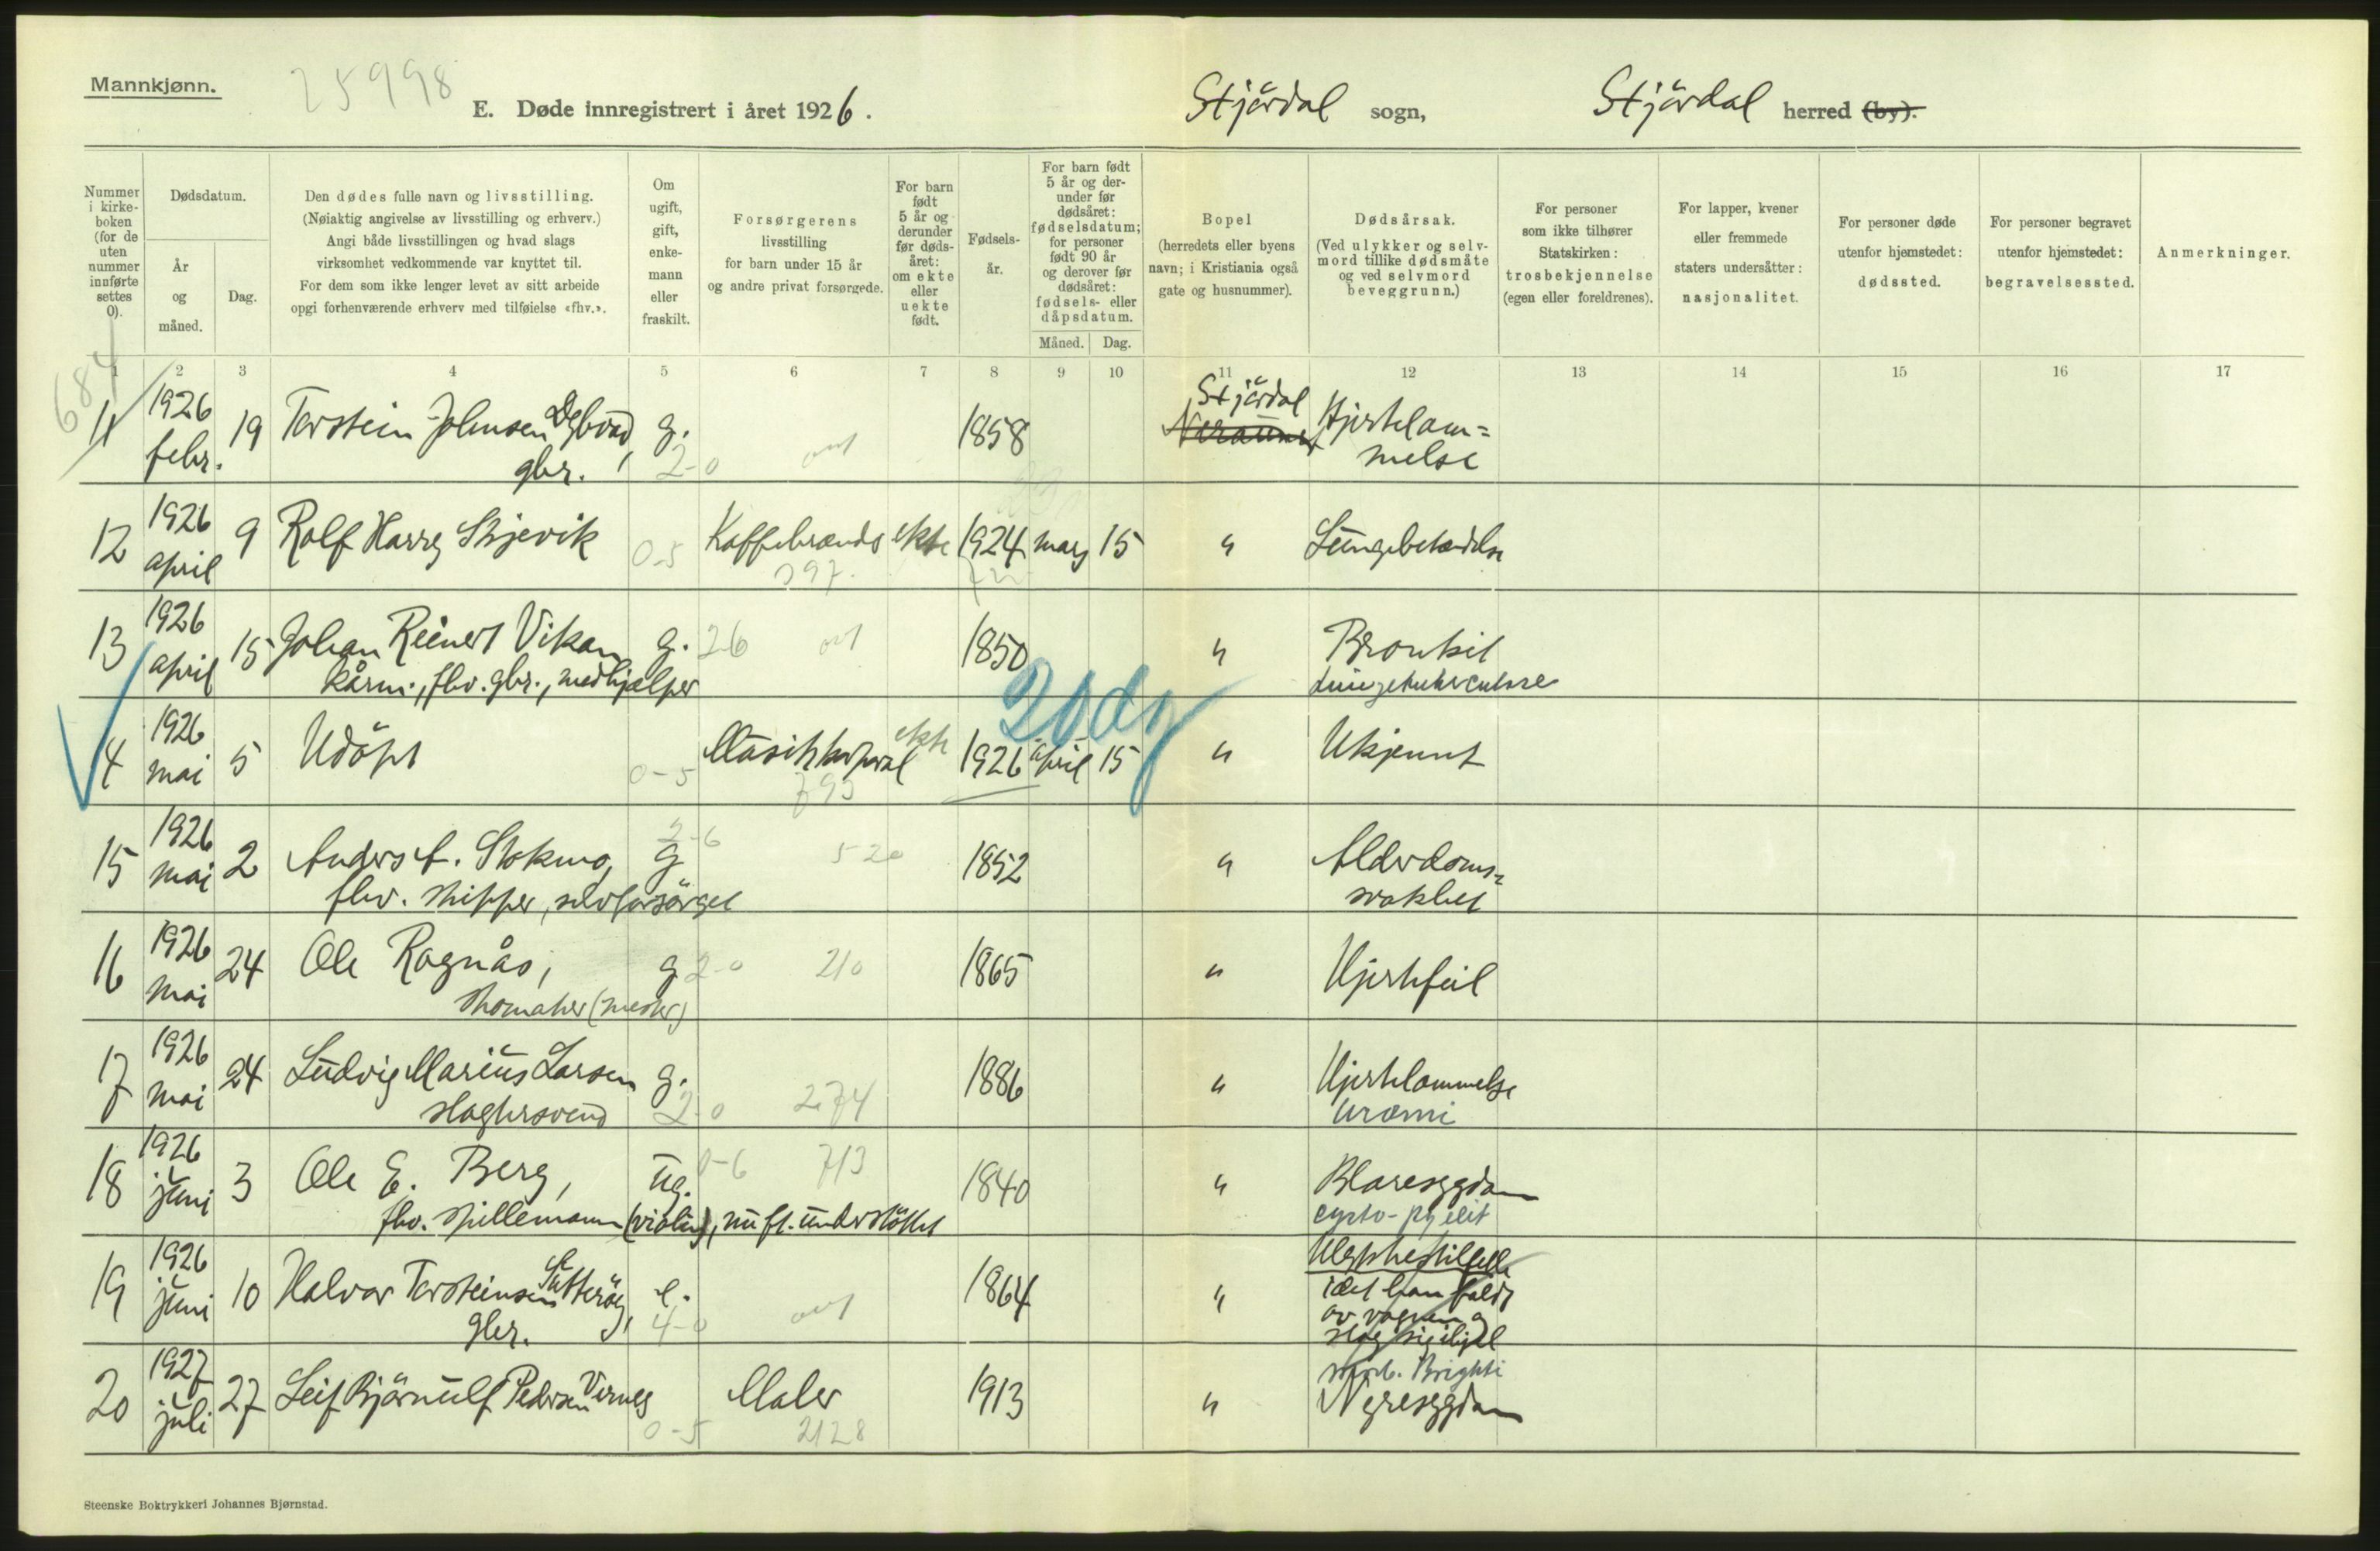 Mannkjønn.
25998
E. Døde innregistrert i året 1926.
Stjördal sogn,
Stjördal herred (by).
Nummer i kirke-boken (for de uten nummer innførte settes 0).
Dødsdatum.
År og måned.
Dag.
Den dødes fulle navn og livsstilling.
(Nøiaktig angivelse av livsstilling og erhverv.)
Angi både livsstillingen og hvad slags
virksomhet vedkommende var knyttet til.
For dem som ikke lenger levet av sitt arbeide
opgi forhenværende erhverv med tilføielse «fhv.».
Om ugift, gift, enke-mann eller fraskilt.
Forsørgerens
livsstilling
for barn under 15 år
og andre privat forsørgede.
For barn født 5 år og derunder før døds-året: om ekte eller uekte født.
Fødsels-år.
For barn født 5 år og der-under før dødsåret: fødselsdatum; for personer født 90 år og derover før dødsåret: fødsels- eller dåpsdatum.
Måned.
Dag.
Bopel
(herredets eller byens
navn; i Kristiania også
gate og husnummer).
Dødsårsak.
(Ved ulykker og selv-
mord tillike dødsmåte
og ved selvmord
beveggrunn.)
For personer
som ikke tilhører
Statskirken:
trosbekjennelse
(egen eller foreldrenes).
For lapper, kvener
eller fremmede
staters undersåtter:
nasjonalitet.
For personer døde
utenfor hjemstedet:
dødssted.
For personer begravet
utenfor hjemstedet:
begravelsessted.
Anmerkninger.
684
1 2 3 4 5 6 7 8 9 10 11 12 13 14 15 16 17
11 1926 febr. 19 Torstein Johnsen g. 1858 Stjördal Hjertelam=
gbr. 2-0 melse
12 1926 april 9 Rolf Harry Skjevik 0-5 Kaffebrænder ekte 1924 mars 15 " Lungebetændelse
397.
13 1926 april 15 Johan Reinert Vikan g. 26 1850 " Bronkit
kårm., fhv. gbr., medhjelper Lungetuberculose
20 dg
4 1926 mai 5 Udöpt 0-5 Musikkorporal ekte 1926 april 15 " Ukjent
795
15 1926 mai 2 Anders A. Stokmo, g 2-6 520 1852 " Alderdoms=
fhv. skipper, selvforsörget svakhet
16 1926 mai 24 Ole Ragnås, g 2-0 210 1865 " Hjertefeil
skomaker (mester)
17 1926 mai 24 Ludvig Marius Larsen g. 1886 " Hjertelammelse
slaktersvend 2-0 274 Uræmi
18 1926 juni 3 Ole E. Berg, ug. 0-6 713 1840 " Blæresygdom
fhv. spillemann (violin), nu ft. understöttet cysto-pyelit
19 1926 juni 10 Halvor Torsteinsen e. 1864 " Ulykkestilfelle
gbr. 4-0 idet han faldt
av vognen og
slog sig ihjel
20 1927 juli 27 Leif Björnulf Pedersen Vernes 0-5 Maler 1913 " morb. Brighti
2128 Nyresygdom
Steenske Boktrykkeri Johannes Bjørnstad.